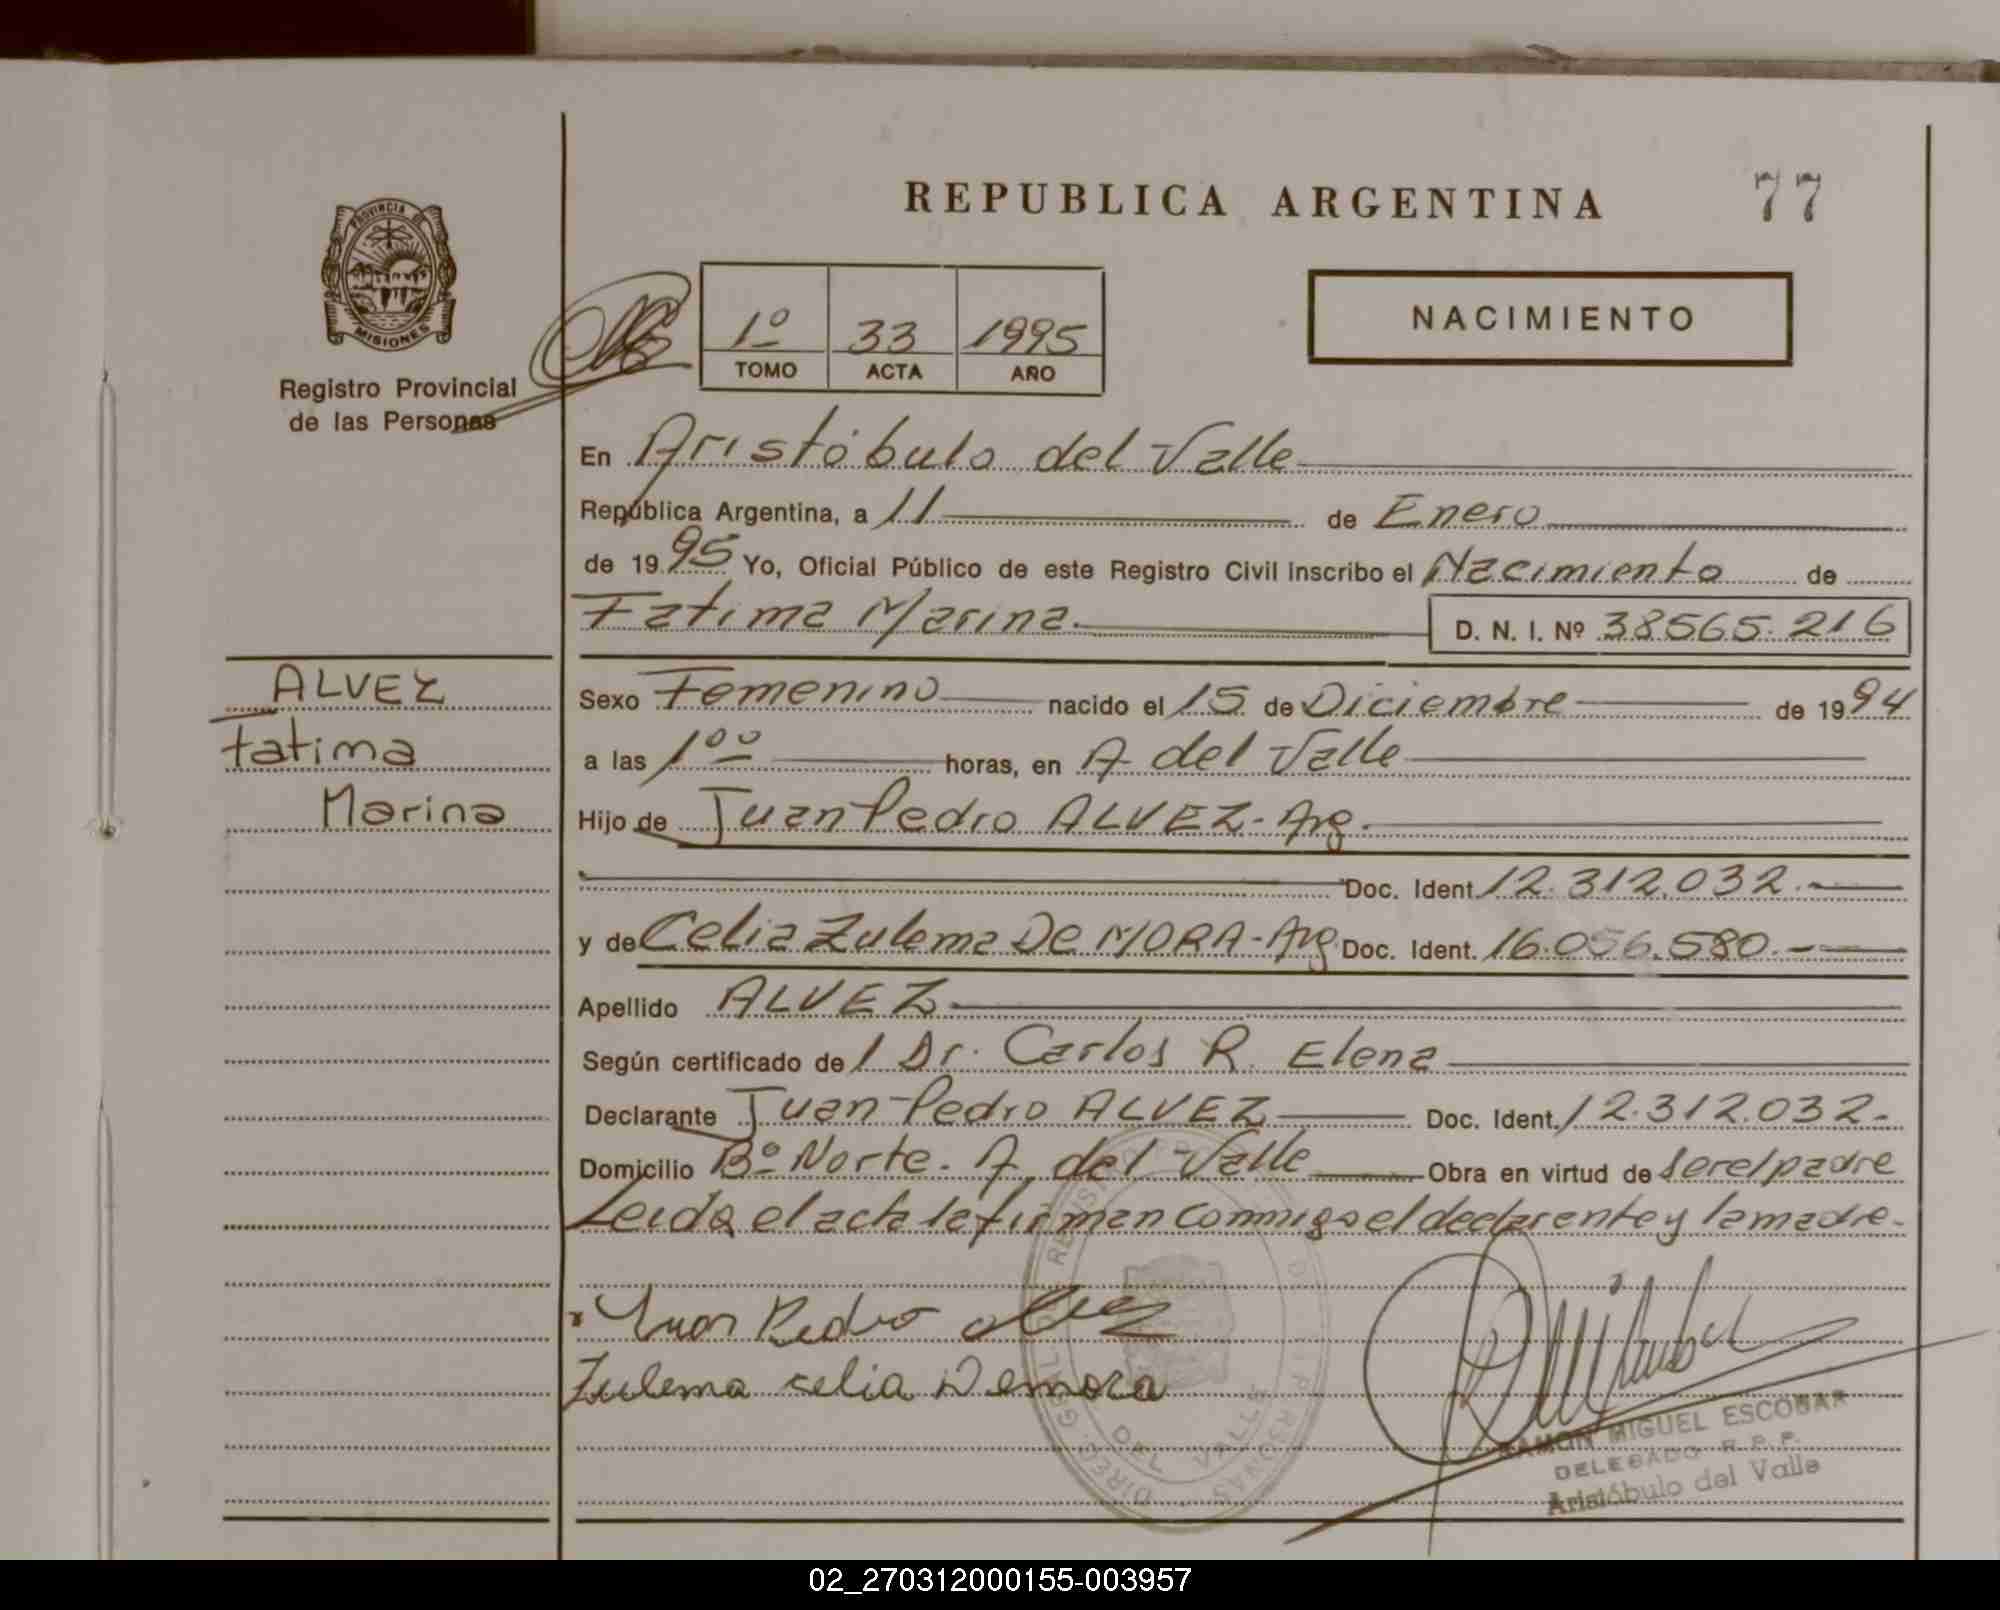 REPUBLICA ARGENTINA
77
PROVINCIA DE
MISIONES
Registro Provincial
de las Personas
1º 33 1995
TOMO ACTA AÑO
NACIMIENTO
En Aristóbulo del Valle
República Argentina, a 11 de Enero
de 1995 Yo, Oficial Público de este Registro Civil Inscribo el Nacimiento de
Fatima Marina. D. N. I. Nº 38565.216
ALVEZ
Fatima
Marina
Sexo Femenino nacido el 15 de Diciembre de 1994
a las 1⁰⁰ horas, en A. del Valle
Hijo de Juan Pedro ALVEZ - Arg.
Doc. Ident. 12.312.032.-
y de Celia Zulema De MORA - Arg. Doc. Ident. 16.056.580.-
Apellido ALVEZ
Según certificado de l Dr. Carlos R. Elena
Declarante Juan Pedro ALVEZ Doc. Ident. 12.312.032.-
Domicilio Bº Norte. A. del Valle Obra en virtud de ser el padre
Leida el acta la firman conmigo el declarante y la madre.-
Juan Pedro Alvez
Zulema celia Demora
DEL VALLE
RAMON MIGUEL ESCOBAR
DELEGADO R. P. P.
Aristóbulo del Valle
02_270312000155-003957